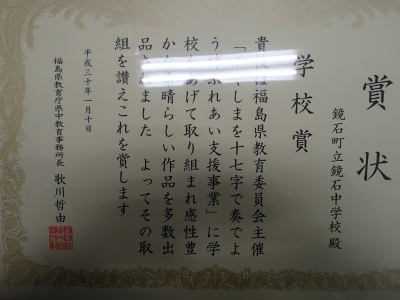 賞状
鏡石町立鏡石中学校殿
学校賞
貴 は福島県教育委員会主催
「 しまを十七字で奏でよ
う ふれあい支援事業」に学
校 あげて取り組まれ感性豊
か 晴らしい作品を多数出
品 ました よってその取
組を讃えこれを賞します
平成三十年一月十日
福島県教育庁県中教育事務所長 歌川哲由